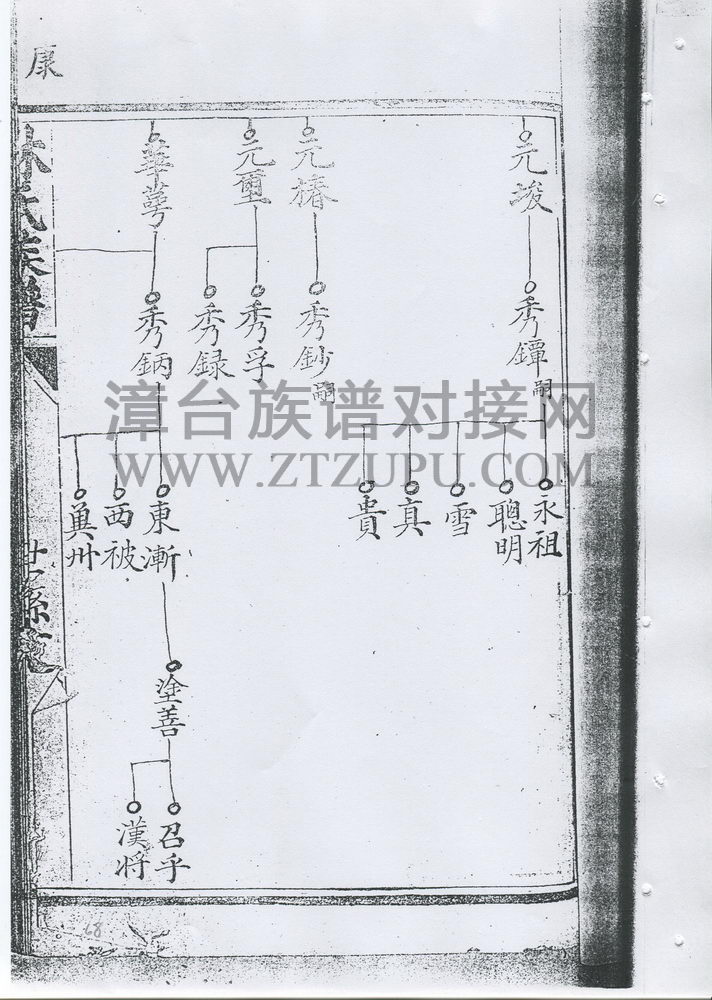 康
林氏族譜
世系
元埈
元椿
元璽
華萼
秀鐔嗣
秀鈔嗣
秀孚
秀録
秀鈵
永祖
聰明
雪
真
貴
東漸
西被
冀州
塗善
召乎
漢将
漳台族谱对接网
WWW.ZTZUPU.COM
68